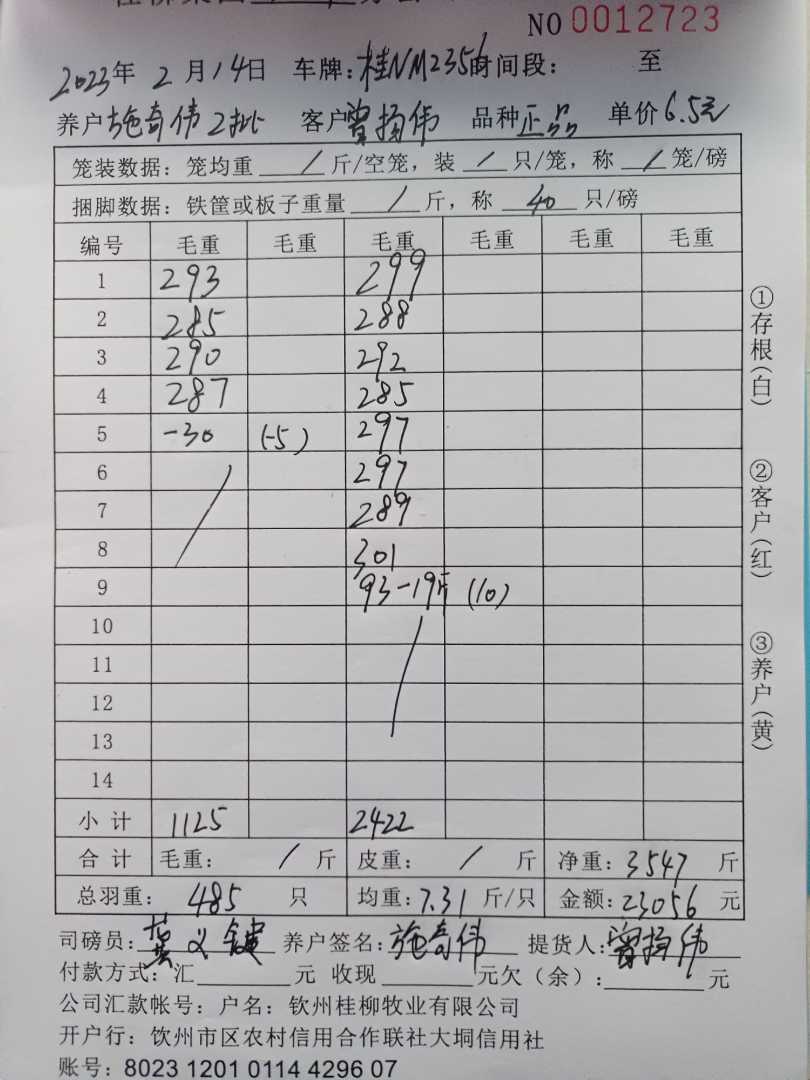 NO 0012723
2023年 2月14日 车牌:桂NM2356 时间段: 至
养户 施奇伟2批 客户 曾扬伟 品种 正品 单价 6.5元
笼装数据: 笼均重 / 斤/空笼, 装 / 只/笼, 称 / 笼/磅
捆脚数据: 铁筐或板子重量 / 斤, 称 40 只/磅
编号 毛重 毛重 毛重 毛重 毛重 毛重
1 293 299
2 285 288
3 290 292
4 287 285
5 -30 (-5) 297
6 297
7 289
8 301
9 93-19斤 (10)
10
11
12
13
14
小计 1125 2422
合计 毛重: / 斤 皮重: / 斤 净重: 3547 斤
总羽重: 485 只 均重: 7.31 斤/只 金额: 23056 元
司磅员: 黄义键 养户签名: 施奇伟 提货人: 曾扬伟
付款方式: 汇 元 收现 元欠(余): 元
公司汇款帐号: 户名: 钦州桂柳牧业有限公司
开户行: 钦州市区农村信用合作联社大垌信用社
账号: 8023 1201 0114 4296 07
①存根(白)
②客户(红)
③养户(黄)